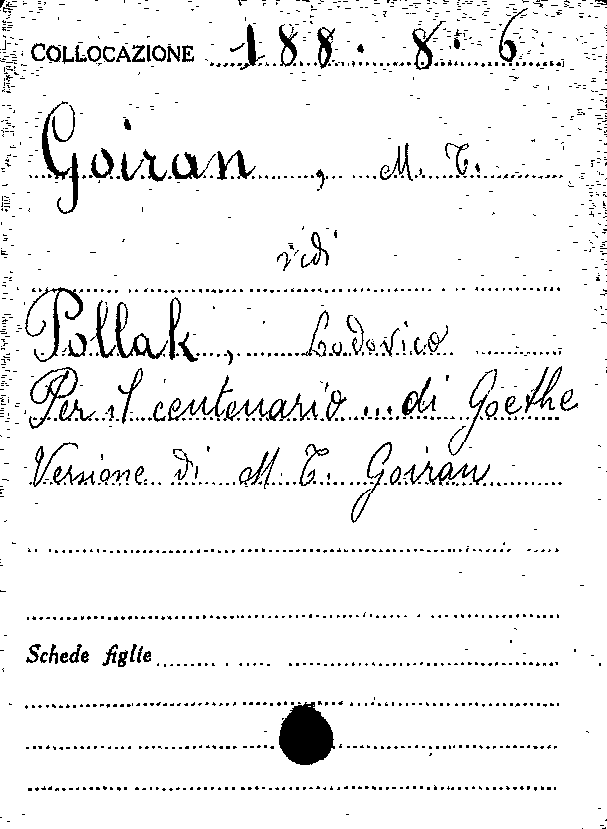 COLLOCAZIONE 188. 8. 6
Goiran, M. T.
vidi
Pollak, Lodovico
Per il centenario ... di Goethe
Versione di M. T. Goiran
Schede figlie